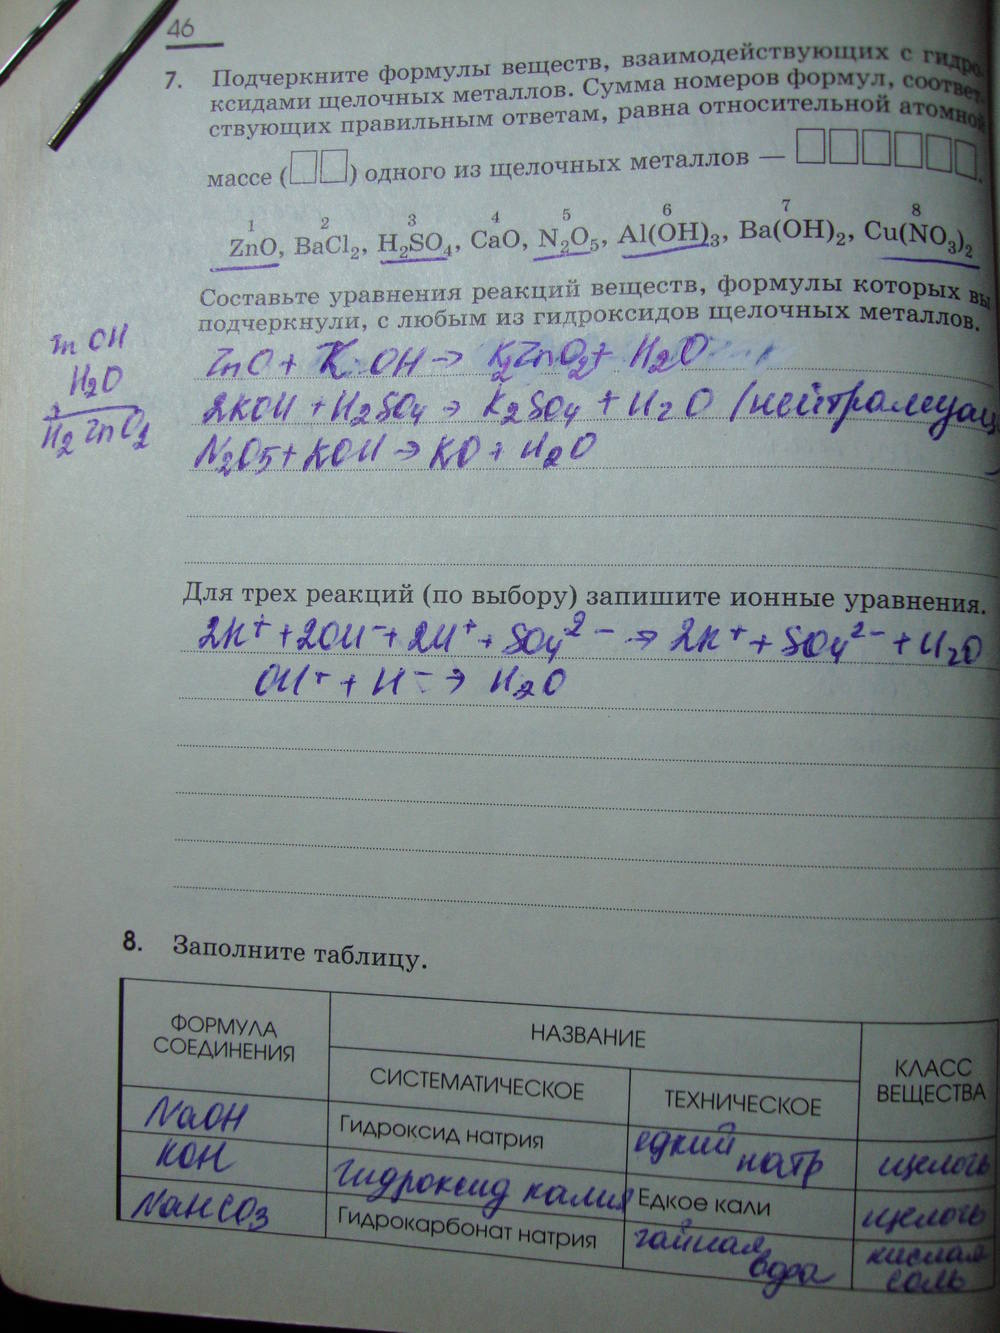 46
7. Подчеркните формулы веществ, взаимодействующих с гидро-
ксидами щелочных металлов. Сумма номеров формул, соответ-
ствующих правильным ответам, равна относительной атомной
массе (□□) одного из щелочных металлов — □□□□□□.
1 2 3 4 5 6 7 8
ZnO, BaCl₂, H₂SO₄, CaO, N₂O₅, Al(OH)₃, Ba(OH)₂, Cu(NO₃)₂
Составьте уравнения реакций веществ, формулы которых вы
подчеркнули, с любым из гидроксидов щелочных металлов.
OH
H₂O
H₂ZnO₂
ZnO + KOH → K₂ZnO₂ + H₂O
2KOH + H₂SO₄ → K₂SO₄ + H₂O (нейтрализац
N₂O₅ + KOH → KO + H₂O
Для трех реакций (по выбору) запишите ионные уравнения.
2K⁺ + 2OH⁻ + 2H⁺ + SO₄²⁻ → 2K⁺ + SO₄²⁻ + H₂O
OH⁺ + H⁻ → H₂O
8. Заполните таблицу.
ФОРМУЛА СОЕДИНЕНИЯ
НАЗВАНИЕ
КЛАСС ВЕЩЕСТВА
СИСТЕМАТИЧЕСКОЕ ТЕХНИЧЕСКОЕ
NaOH Гидроксид натрия едкий натр щелочь
KOH гидроксид калия Едкое кали щелочь
NaHCO₃ Гидрокарбонат натрия вода кислая соль